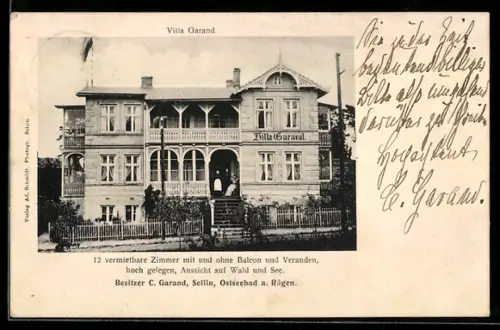 Villa Garand
Villa Garand.
Verlag Ad. Schmidt, Photogr., Sellin.
12 vermietbare Zimmer mit und ohne Balcon und Veranden,
hoch gelegen, Aussicht auf Wald und See.
Besitzer C. Garand, Sellin, Ostseebad a. Rügen.
Sie zu der Zeit
Bitte
Hochachtend
C. Garand.